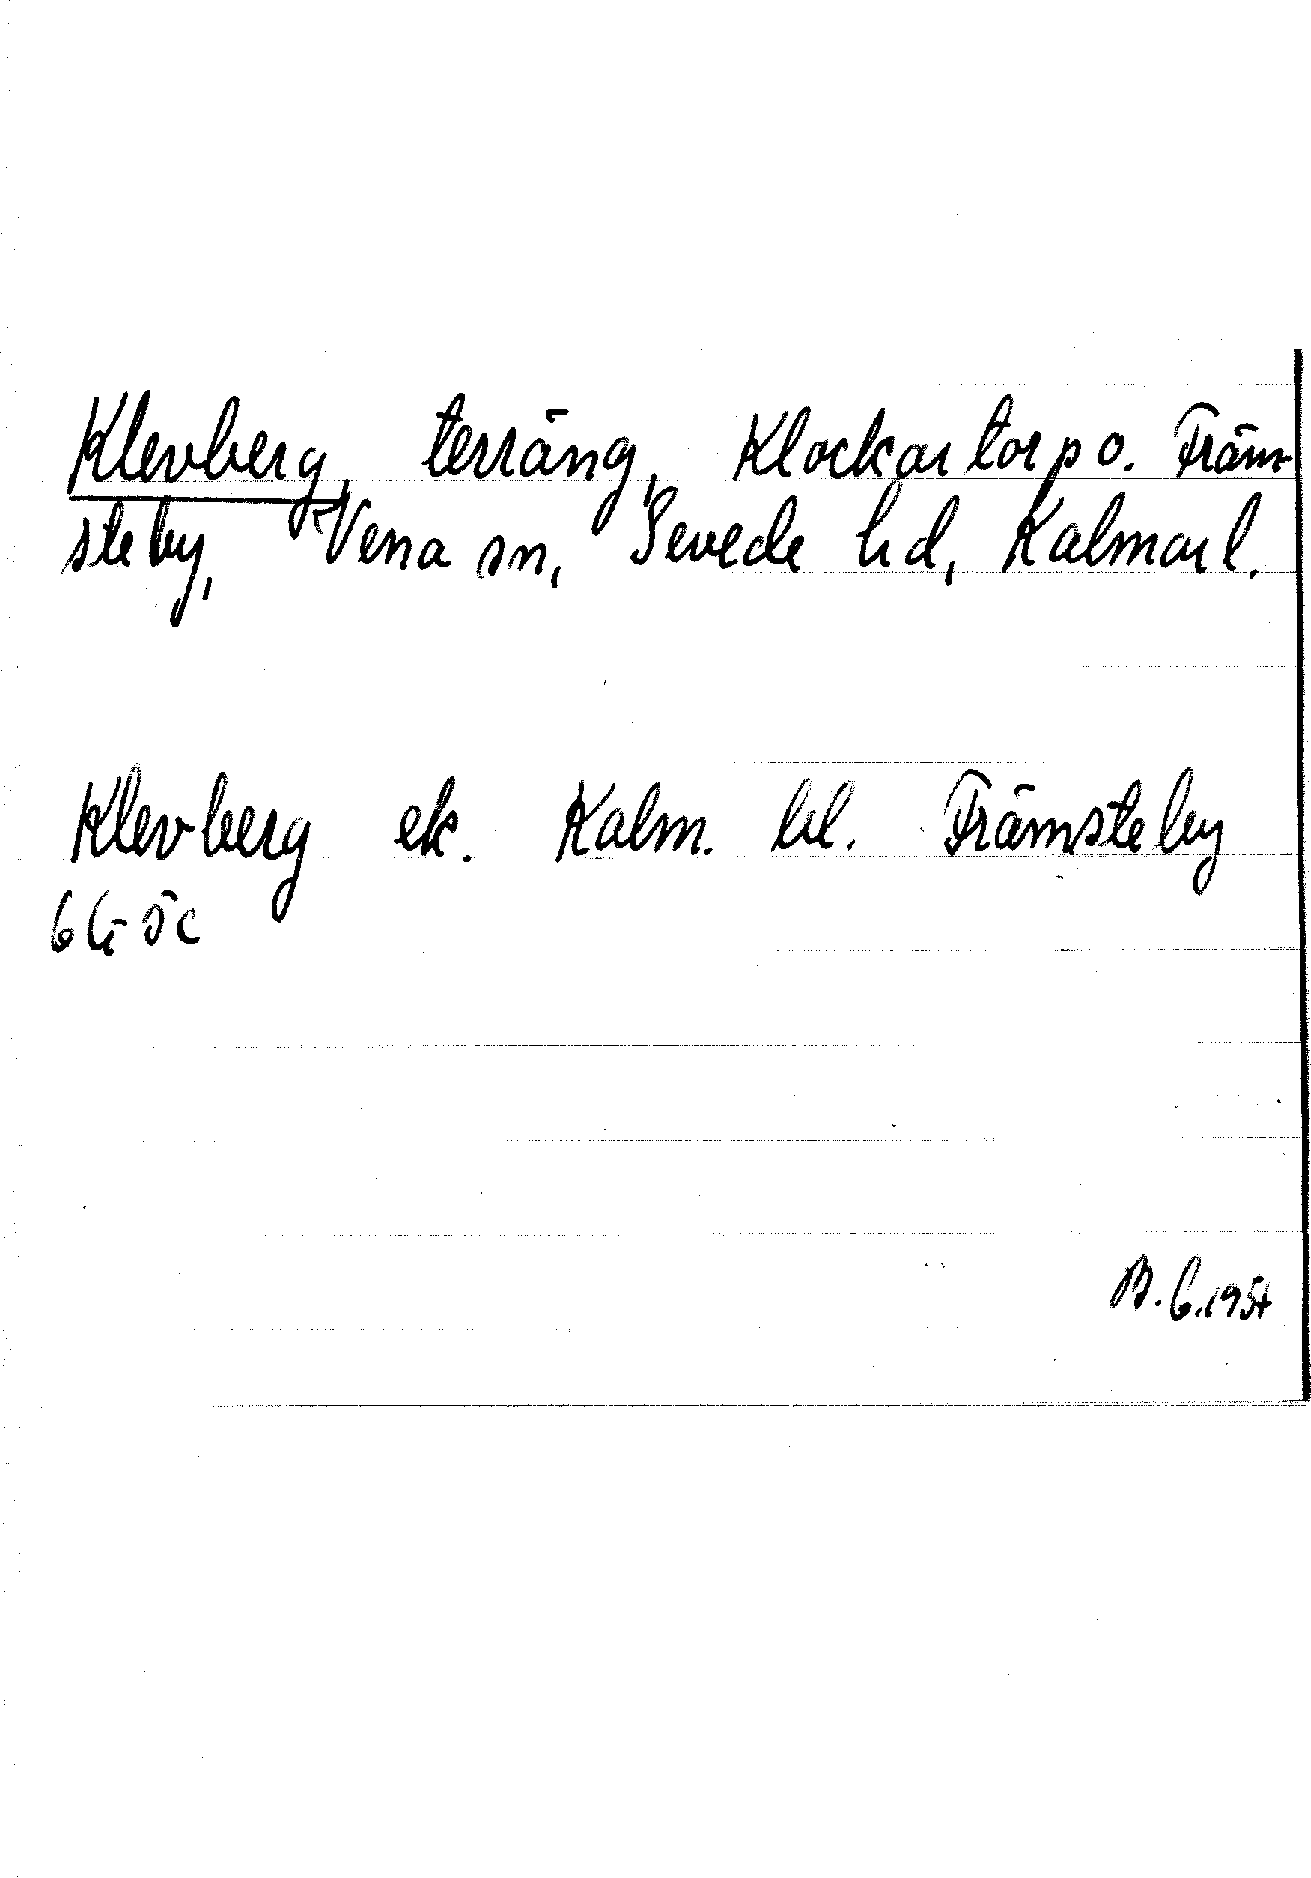 Klevberg, terräng, Klockartorp o. Främ-
steby, Vena sn, Sevede hd, Kalmar l.
Klevberg ek. Kalm. bl. Främsteby
6 G 5c
B. G. 1954